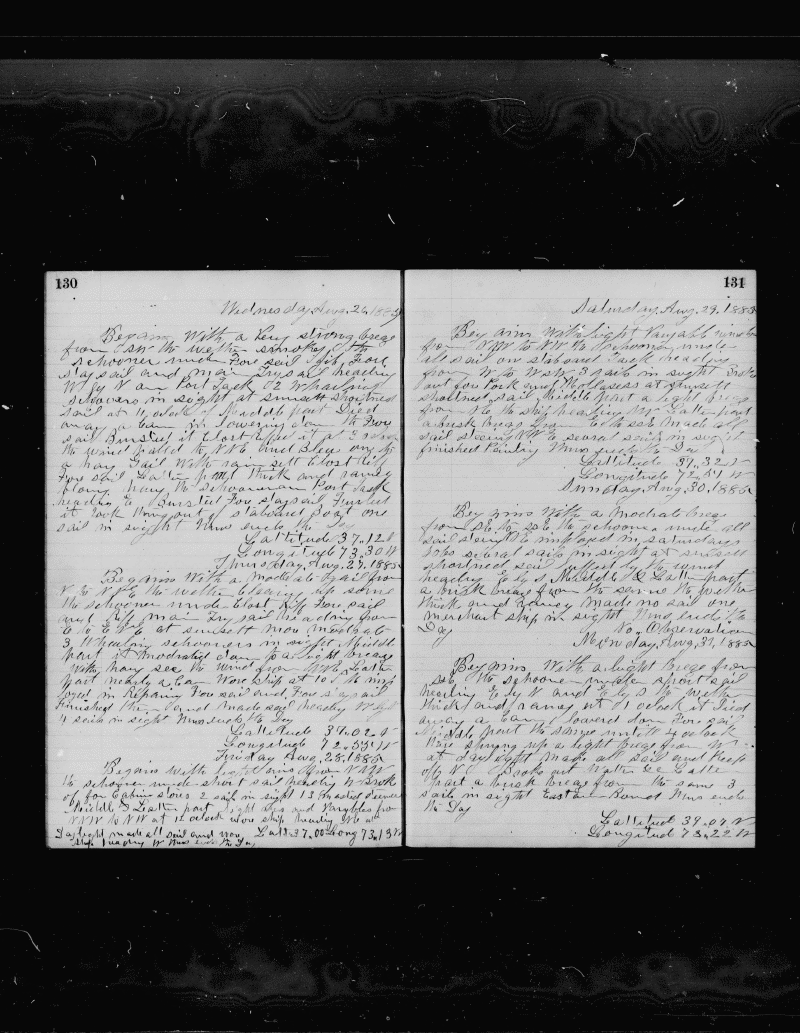 130
Wednesday, Aug. 26, 1885
Begains With a Very strong brege
from SSW the wether smokey the
schooner under Fore sail Jib, Fore
staysail and main trysail heading
W by N on Port Tack 02 Whaleing
Schooners in sight at sunsett shortned
sail at 11 oclock Middle part Died
away a Cam in lowering down the Fore
sail Bursted it Clost reffed it at 3
the wind the NNE and Blew
a havy Gail With rain sett Clost reff
Fore sail Latter part thick and rainey
blowing havy the schooner on Port Tack
heading E Bursted Fore staysail Furled
it took out of staboard boat one
sail in sight Thus ends the Day
Lattitude 37.12 N
Longitude 73.30 W
Thursday, Aug. 27, 1885
Begains With a moderate gail from
N to NNE the wether Clearing up some
the schooner under Clost reff Fore sail
and main Try sail heading from
E to ENE at sunsett more moderate
3 Whaleing schooners in sight Middle
part it modrated down to a light brege
with havy sea the wind from NNE Latter
part nearly a Cam Wore ship at 10
in Repairing Fore sail and Fore staysail
Finished them and made sail heading
4 sails in sight Thus ends the Day
Lattitude 37.02 N
Longitude 72.59 W
Friday Aug. 28, 1885
Begains with light airs from NNE
the schooner under short sail heading W Broke
out for Cabin stores 2 sail in sight
Middle & Latter part light airs and Varables from
NNW to NW at 12 oclock wore ship heading
Daylight made all sail and wore Latt. 37.00 Long 73.13 W
ship heading W Thus ends the Day
131
Saturday, Aug. 29, 1885
Begains With light Varyable winds
from NW to NW the schooner under
all sail on staboard Tack heading
from W to WSW 3 sails in sight Broke
out for Pork and Mollasess at sunsett
shortned sail Middle part a light brege
from SE the ship heading Latter part
a brisk brege from to SSE Made all
sail stearing several sails in sight
finished Painting Thus ends the Day
Lattitude 37.32 N
Longitude 72.51 W
Sunday, Aug. 30, 1885
Begains With a Moderate brege
from SE to SSE the schooner under all
sail imployed in saturdays
Jobs several sails in sight at sunsett
shortned sail the wind
heading E by S Middle & Latter part
a brisk brege from the same the wether
thick and Rainey made no sail one
merchant ship in sight Thus ends the
Day No Observation
Monday, Aug. 31, 1885
Begains With a light brege from
SE the schooner under short sail
heading E by N and E by S the wether
thick and rainey at 1 oclock it Died
away a Cam lowered down Fore sail
Middle part the same untill 4 oclock
there springs up a light brege from W
at daylight made all sail and Keep
off NE Broke out Water &c Latter
part a brisk brege from the same 3
sails in sight Eastern Bound Thus ends
the Day
Lattitude 37.04 N
Longitude 73.22 W